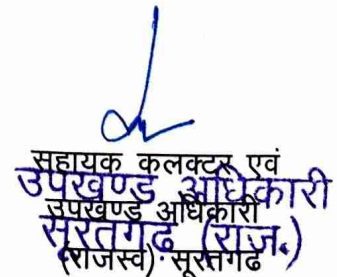 सहायक कलक्टर एवं
उपखण्ड अधिकारी
उपखण्ड अधिकारी
सूरतगढ़ (राज.)
(राजस्व) सूरतगढ